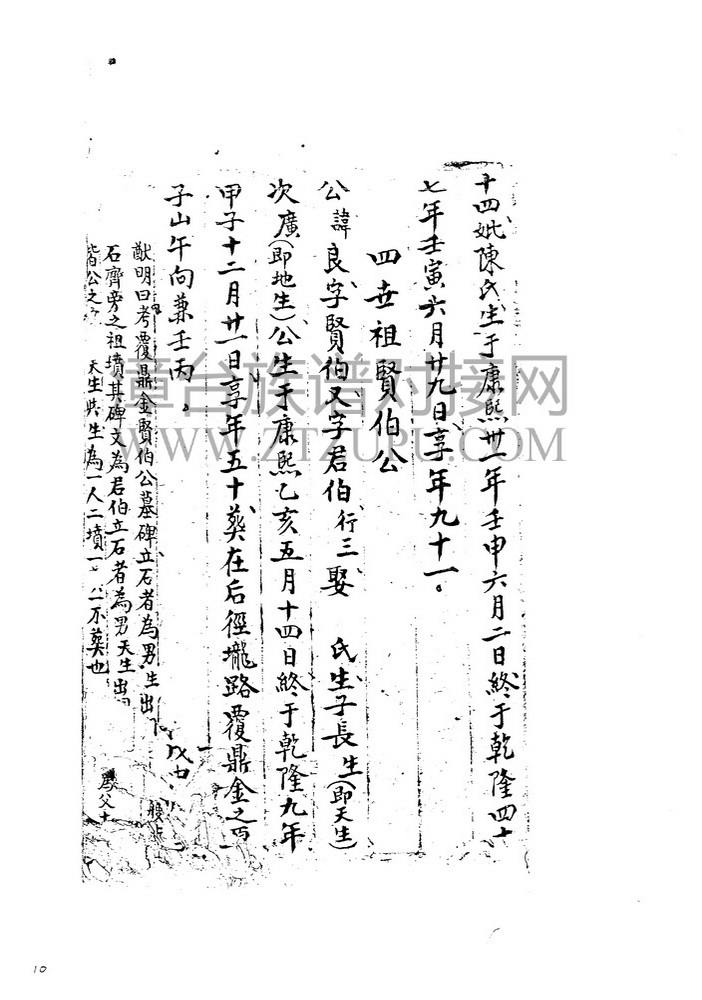 十四妣陳氏生于康熙卅一年壬申六月二日終于乾隆四十
七年壬寅六月廿九日享年九十一。
四世祖賢伯公
公諱良字賢伯又字君伯行三娶 氏生子長生(即天生)
次廣(即地生)公生于康熙乙亥五月十四日終于乾隆九年
甲子十二月廿一日享年五十葬在后徑壠路覆鼎金之
子山午向兼壬丙。
猷明曰考覆鼎金賢伯公墓碑立石者為男生出
石齊旁之祖墳其碑文為君伯立石者為男天生出
皆公之 天生與生為一人二墳一 不葬也
為父十
章台族谱对接网
WWW.ZTZUPU.COM
10